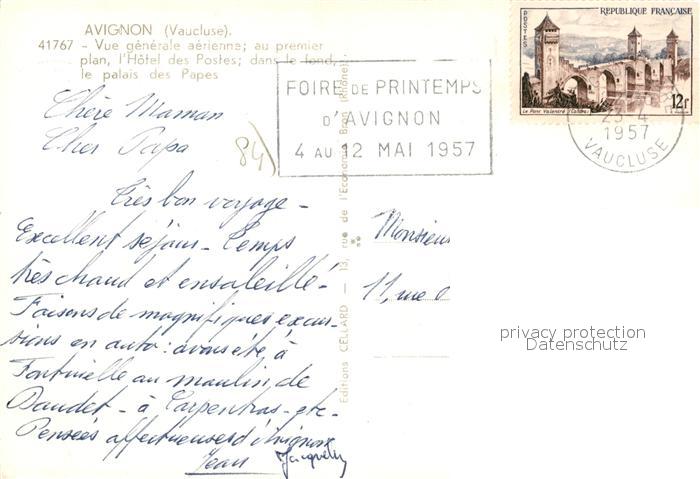 AVIGNON (Vaucluse).
41767 - Vue générale aérienne; au premier
plan, l'Hôtel des Postes; dans le fond,
le palais des Papes
POSTES
REPUBLIQUE FRANÇAISE
12f
Le Pont Valentré (Cahors)
FOIRE DE PRINTEMPS
D'AVIGNON
4 AU 12 MAI 1957
25-4
1957
VAUCLUSE
84)
Chère Maman
Cher Papa
Très bon voyage -
Excellent séjour - Temps
très chaud et ensoleillé -
Faisons de magnifiques excur-
sions en auto : avons été à
Fontvielle au moulin de
Daudet - à Carpentras - etc -
Pensées affectueuses d'Avignon
Jean Jacqueline
Editions CELLARD - 13, rue de l'Economie, Bron (Rhône)
Monsieur
11, rue
privacy protection
Datenschutz